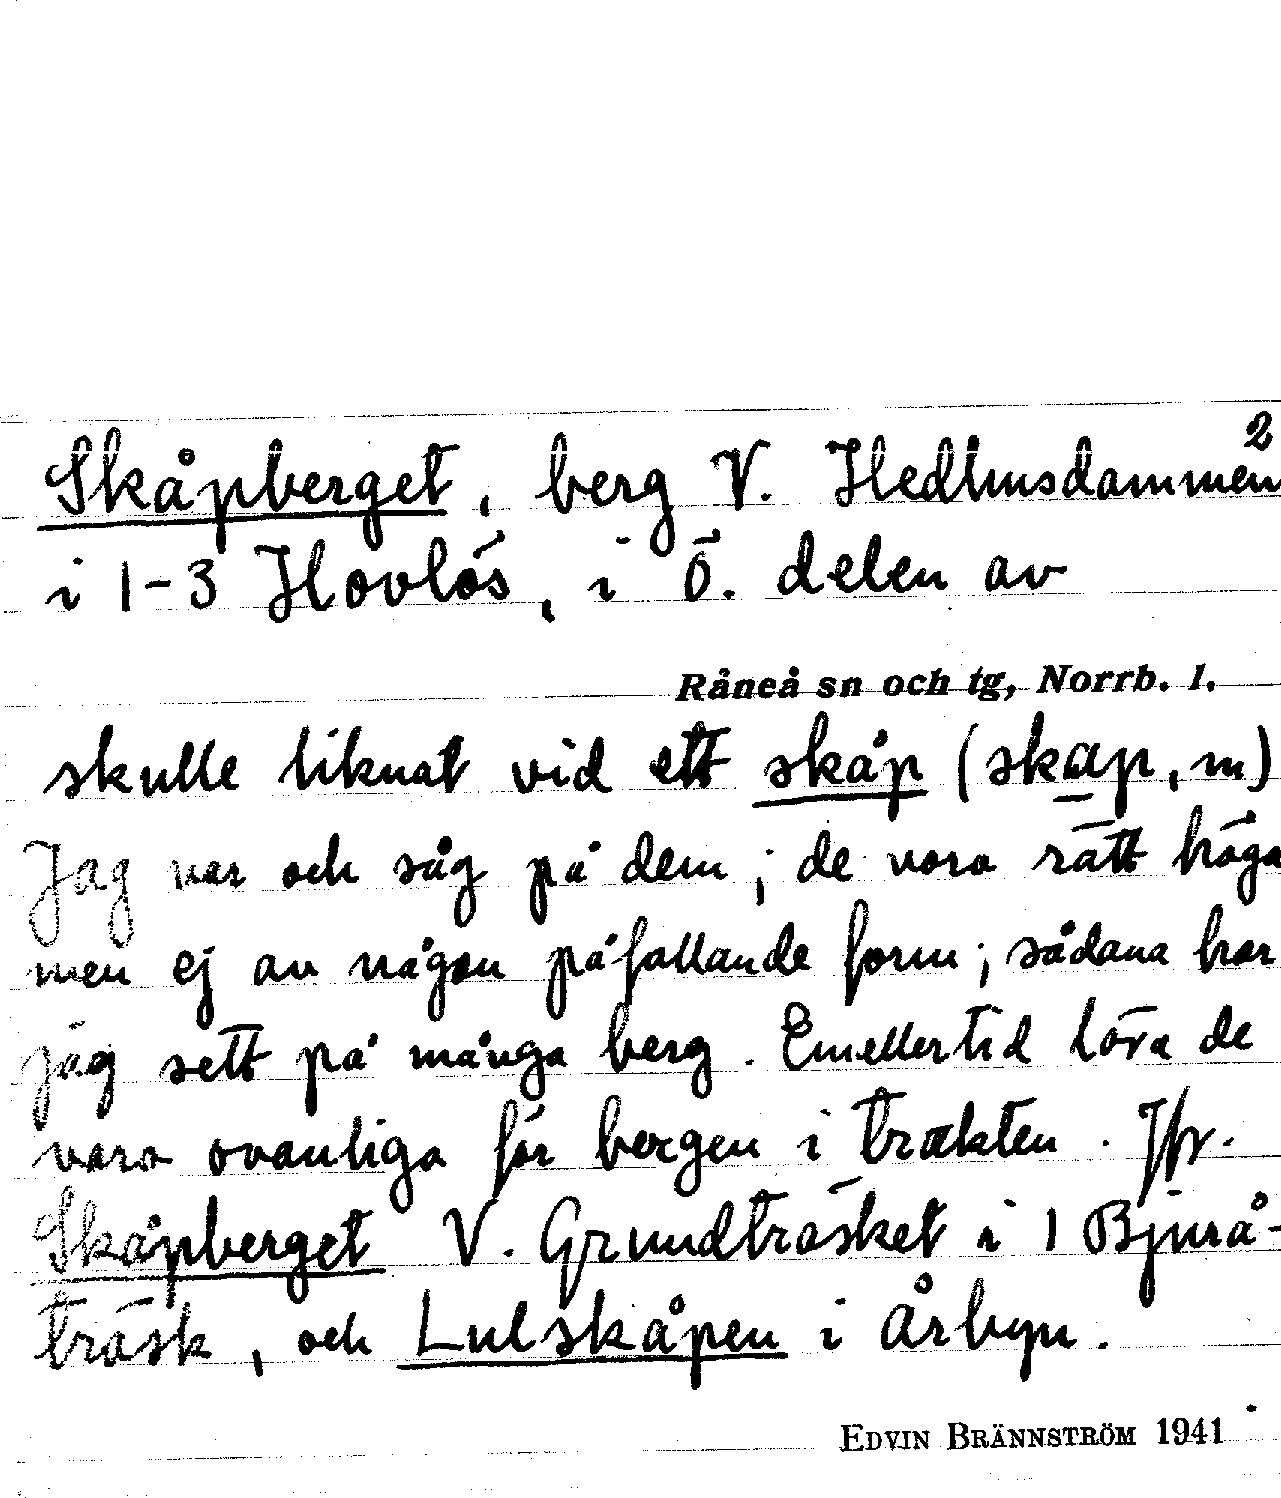 2
Skåpberget, berg V. Hedhusdammen
i 1-3 Hovlös, i Ö. delen av
Råneå sn och tg, Norrb. l.
skulle liknat vid ett skåp (skap, m)
Jag var och såg på dem; de voro rätt höga
men ej av någon påfallande form; sådana har
jag sett på många berg. Emellertid löra de
vara ovanliga för bergen i trakten. Jfr.
Skåpberget V. Grundträsket i 1 Bjurå-
träsk, och Lulskåpen i Årbyn.
EDVIN BRÄNNSTRÖM 1941